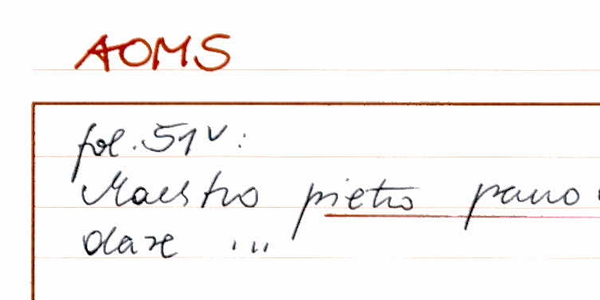 AOMS
fol. 51v:
Maestro pietro
dare ...